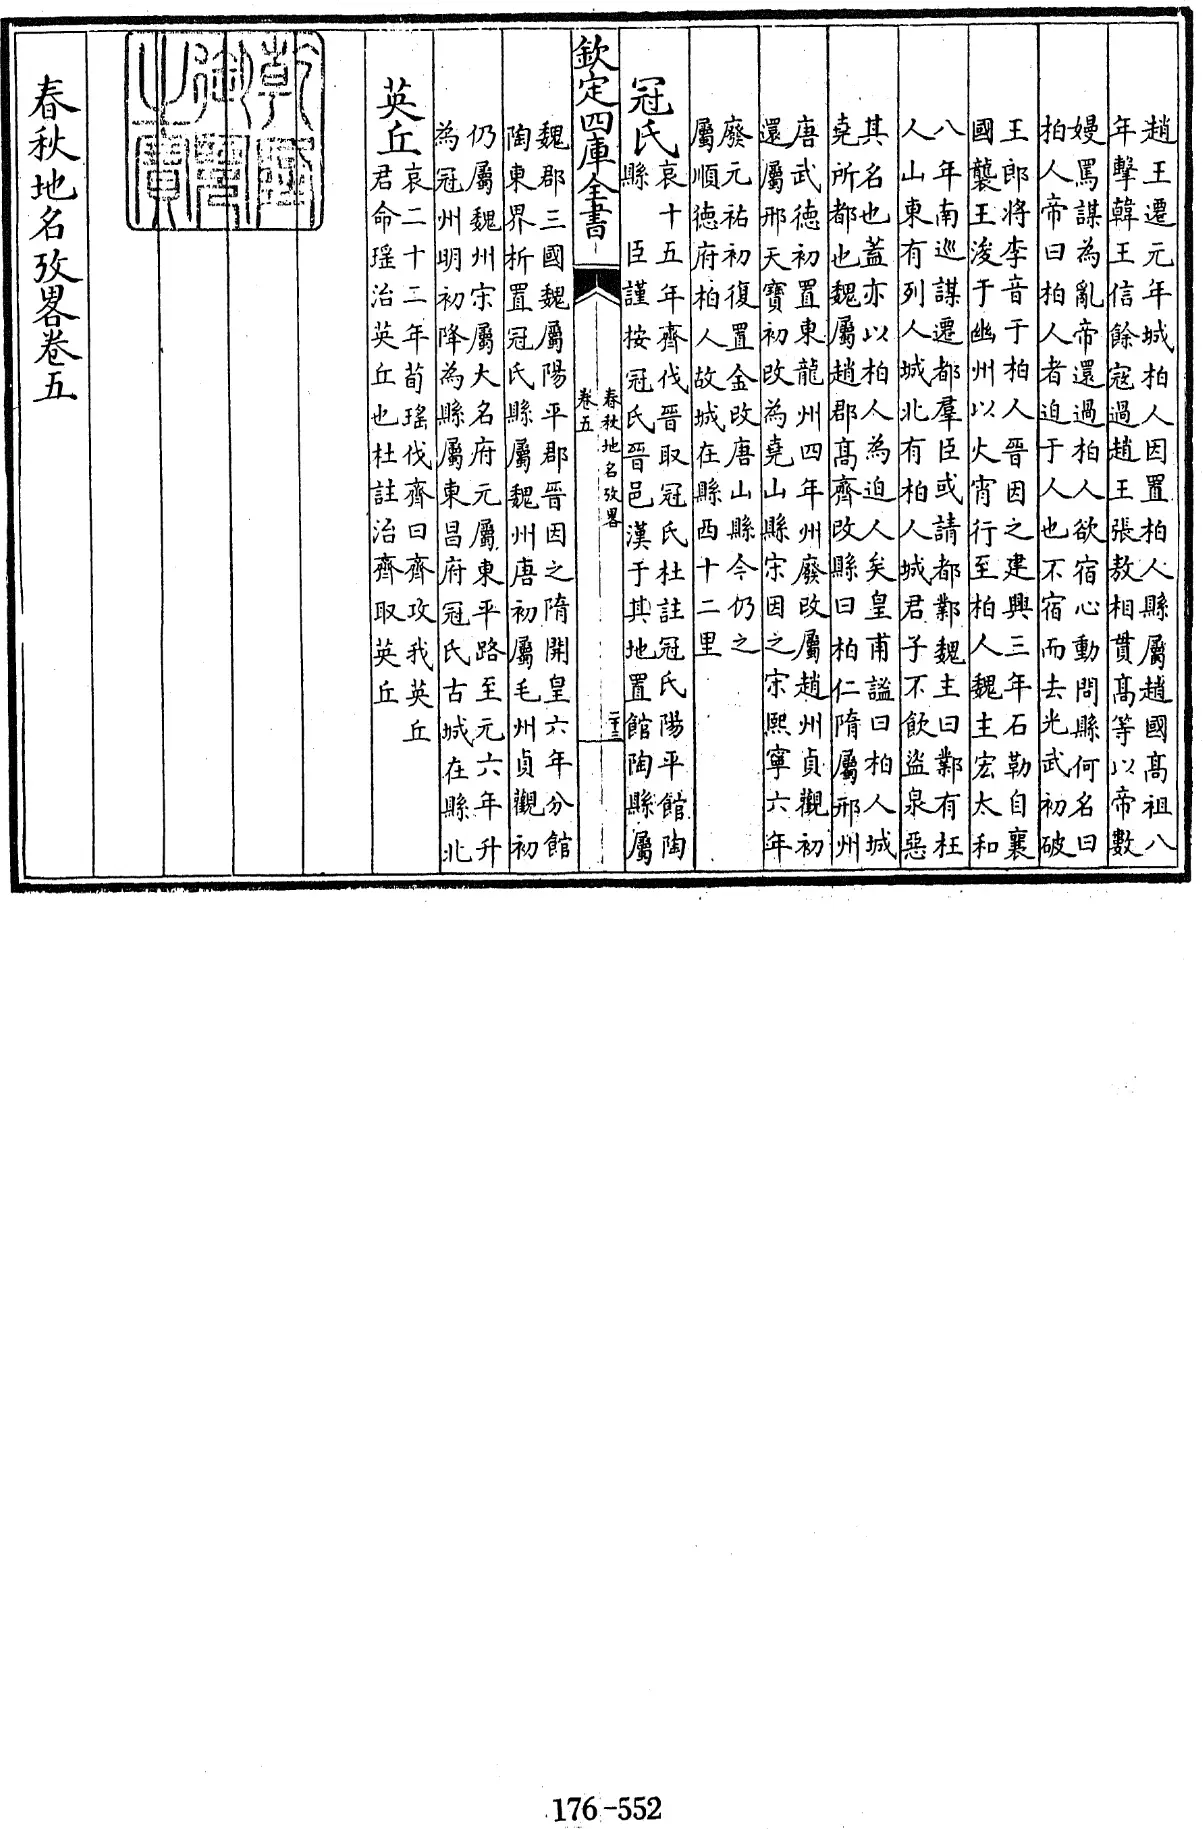 趙王遷元年城柏人因置柏人縣屬趙國髙祖八
年擊韓王信餘寇過趙趙王張敖相貫髙等以帝數
嫚罵謀為亂帝還過柏人欲宿心動問縣何名曰
柏人帝曰柏人者迫于人也不宿而去光武初破
王郎将李音于柏人晉因之建興三年石勒自襄
國襲王浚于幽州以火宵行至柏人魏主宏太和
八年南巡謀遷都羣臣或請都鄴魏主曰鄴有枉
人山東有列人城北有柏人城君子不飲盜泉惡
其名也蓋亦以柏人為迫人矣皇甫謐曰柏人城
堯所都也魏屬趙郡髙齊改縣曰柏仁隋屬邢州
唐武徳初置東龍州四年州廢改屬趙州貞觀初
還屬邢天寶初改為堯山縣宋因之宋熙寧六年
廢元祐初復置金改唐山縣今仍之
屬順徳府柏人故城在縣西十二里
冠氏
哀十五年齊伐晉取冠氏杜註冠氏陽平館陶
縣 臣謹按冠氏晉邑漢于其地置館陶縣屬
欽定四庫全書
春秋地名攷畧
卷五
二十三
魏郡三國魏屬陽平郡晉因之隋開皇六年分館
陶東界析置冠氏縣屬魏州唐初屬毛州貞觀初
仍屬魏州宋屬大名府元屬東平路至元六年升
為冠州明初降為縣屬東昌府冠氏古城在縣北
英丘
哀二十二年荀瑤伐齊曰齊攻我英丘
君命瑤治英丘也杜註治齊取英丘
乾隆
御覽
之寶
春秋地名攷畧卷五
176-552